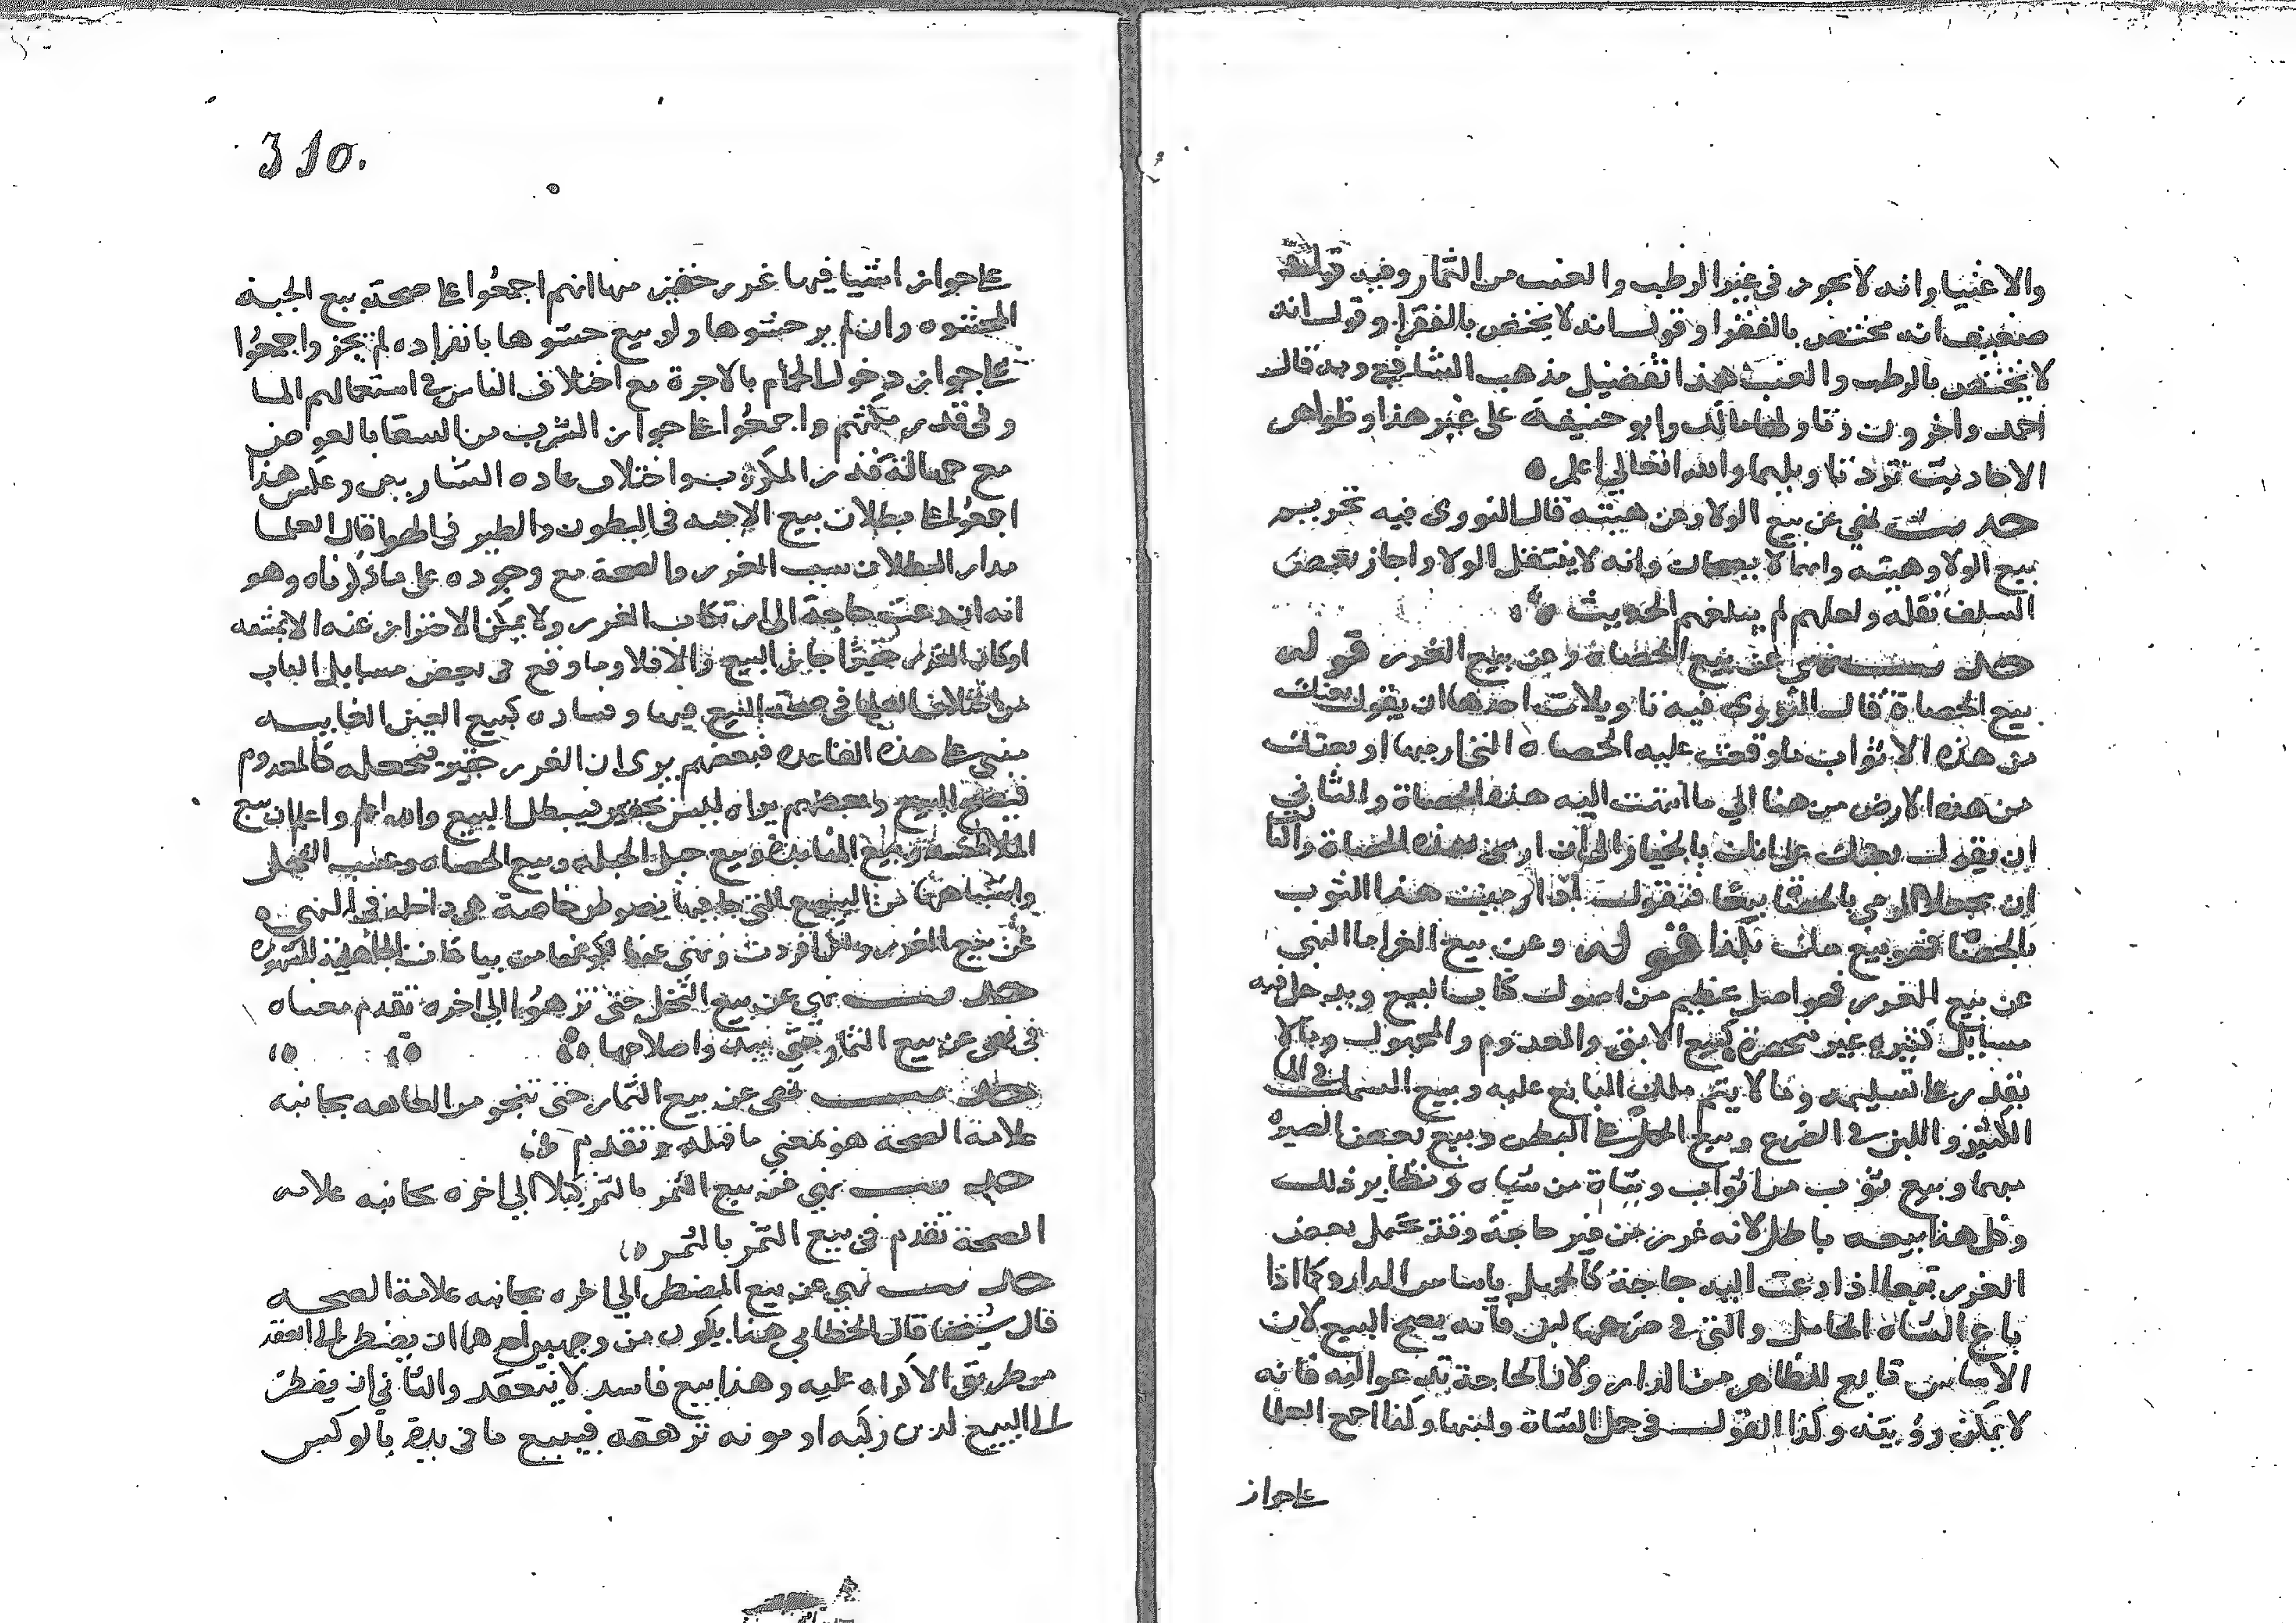 والاغنيا وانه لا يجوز في غير الرطب والعنب من الثمار وفيه قول
ضعيف انه مختص بالفقرا وقول انه لا يختص بالفقرا وقول انه
لا يختص بالرطب والعنب هذا تفضيل مذهب الشافعي وبه قال
احمد واخرون وتاولها مالك وابو حنيفة على غير هذا وظواهر
الاحاديث ترد تاويلهما والله تعالي اعلم ه
حديث نهي عن بيع الولا وعن هبته قال النووي فيه تحريم
بيع الولا وهبته وانهما لا يصحان وانه لا ينتقل الولا واجاز بعض
السلف نقله ولعلهم لم يبلغهم الحديث
حديث نهي عن بيع الحصاة وعن بيع الغرر قوله
بيع الحصاة قال النووي فيه تاويلات احدها ان يقول بعتك
من هذه الاثواب ما وقعت عليه الحصاة التي ارميها او بعتك
من هذه الارض من هنا الي ما انتهت اليه هذه الحصاة والثاني
ان يقول بعتك على انك بالخيار الى ان ارمي بهذه الحصاة والثا
ان يجعلا الرمي بالحصا بيعا فيقول اذا رميت هذا الثوب
بالحصا فهو بيع منك بكذا قوله وعن بيع الغرر اما النهي
عن بيع الغرر فهو اصل عظيم من اصول كتاب البيع ويدخل فيه
مسايل كثيره غير منحصرة كبيع الابق والمعدوم والمجهول وما لا
يقدر على تسليمه وما لا يتم ملك البايع عليه وبيع السمك في الما
الكثير واللبن في الضرع وبيع الحمل في البطن وبيع بعض الصبره
مبهما وبيع ثوب من اثواب وشاة من شياه ونظاير ذلك
وكل هذا بيعه باطل لانه غرر من غير حاجة وقد يحتمل بعض
الغرر تبعا اذا دعت اليه حاجة كالجهل باساس الدار وكما اذا
باع الشاه الحامل والتي في ضرعها لبن فانه يصح البيع لان
الاساس تابع للظاهر من الدار ولان الحاجة تدعو اليه فانه
لا يمكن رؤيته وكذا القول في حمل الشاة ولبنها وكذا اجمع العلما
على جواز
310.
على جواز اشيا فيها غرر حقير منها انهم اجمعوا على صحة بيع الجبة
المحشوه وان لم ير حشوها ولو بيع حشوها بانفراده لم يجز واجمعوا
على جواز دخول الحمام بالاجرة مع اختلاف الناس في استعمالهم الما
وفي قدر مكثهم واجمعوا على جواز الشرب من السقا بالعوض
مع جهالة قدر المشروب واختلاف عاده الشاربين وعكس هذا
اجمعوا على بطلان بيع الاجنه في البطون والطير في الهوا قال العلما
مدار البطلان بسبب الغرر والصحة مع وجوده على ما ذكرناه وهو
انه ان دعت حاجة الى ارتكاب الغرر ولا يمكن الاحتراز عنه الا بمشقه
او كان الغرر حقيرا جاز البيع والا فلا وما وقع في بعض مسايل الباب
من اختلاف العلما في صحة البيع فيها وفساده كبيع العين الغايبه
مبني على هذه القاعده فبعضهم يرى ان الغرر حقير فيجعله كالمعدوم
فيصح البيع وبعضهم يراه ليس بحقير فيبطل البيع والله اعلم واعلم ان بيع
الملامسه وبيع المنابذة وبيع حبل الحبله وبيع الحصاه وعسب الفحل
واشباهها من البيوع التي جا فيها نصوص خاصة هي داخلة في النهي
عن بيع الغرر ولكن افردت ونهي عنها لكونها من بياعات الجاهلية المشهوره
حديث نهي عن بيع النخل حتى تزهوا الي اخره تقدم معناه
في نهى عن بيع الثمار حتى يبدوا صلاحها
حديث نهى عن بيع الثمار حتى تنجو من العاهه بجانبه
علامة الصحة هو بمعنى ما قبله وتقدم
حديث نهي عن بيع الثمر بالتمر كيلا الي اخره بجانبه علامه
الصحة تقدم في بيع الثمر بالتمر
حديث نهي عن بيع المضطر الي اخره بجانبه علامة الصحه
قال شيخنا قال الخطابي هذا يكون من وجهين احدهما ان يضطر الى العقد
من طريق الاكراه عليه وهذا بيع فاسد لا ينعقد والثاني ان يضطر
الى البيع لدين ركبه او مونه ترهقه فيبيع ما في يده بالوكس